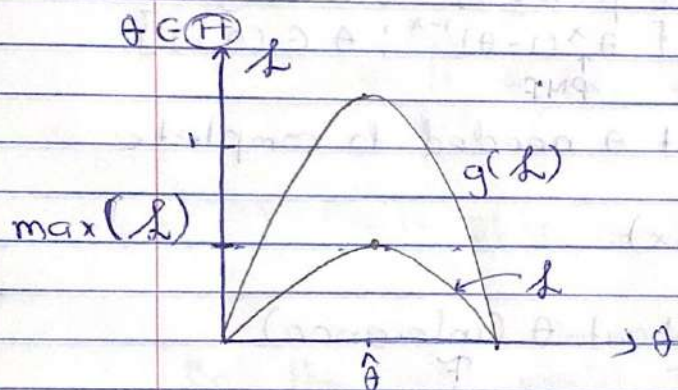 θ ∈ Ⓗ
ℒ
1
g(ℒ)
max(ℒ)
ℒ
θ
θ̂